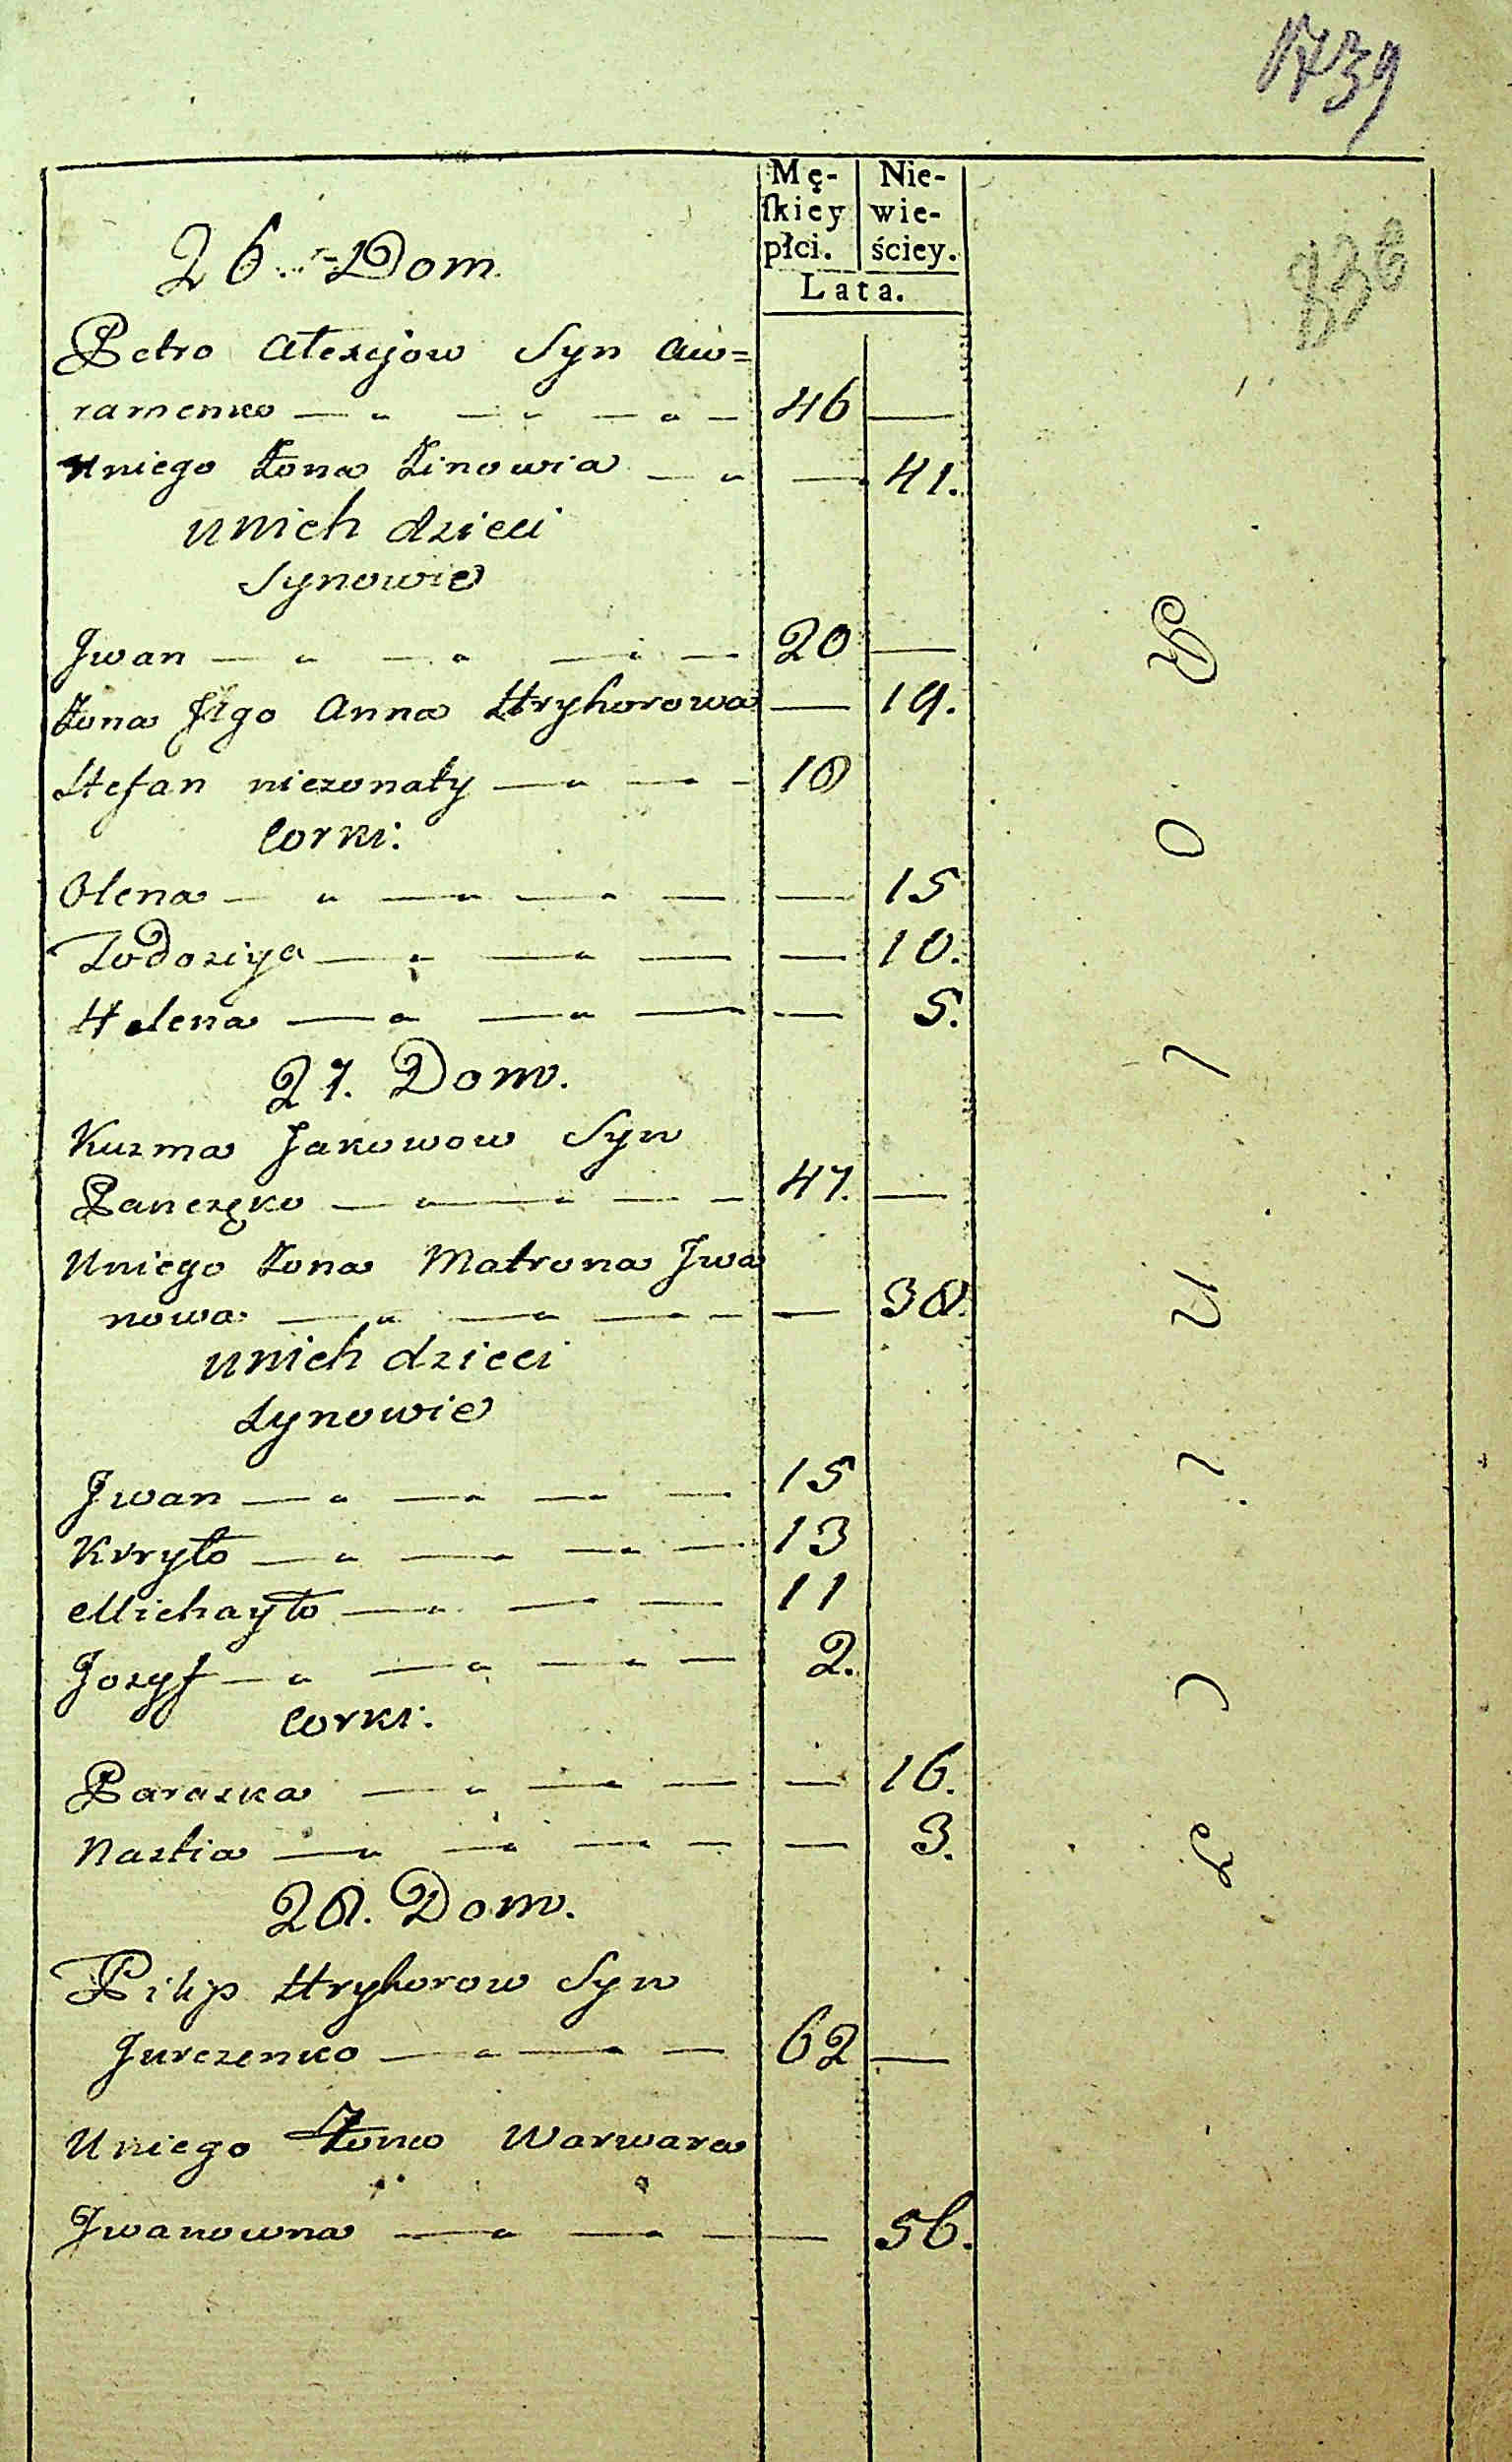 1739
Mę-
ſkiey
płci.
Nie-
wie-
ściey.
Lata.
836
26. Dom
Petro Alexijow Syn Aw=
ramenko 46 —
Uniego Żona Zinowia — 41.
unich dzieci
Synowie
Jwan 20 —
Żona Jego Anna Hryhorowa — 19.
Stefan nieżonaty 18
Corki.
Olena — 15
Todosiya — 10.
Helena — 5.
27. Dom.
Kuzma Jakowow Syn
Panczęko 47. —
Uniego Żona Matrona Jwa
nowa — 38.
unich dzieci
Synowie
Jwan 15
Kiryło 13
Michayło 11
Jozyf 2.
Corki.
Paraska — 16.
Nastia — 3.
28. Dom.
Filip Hryhorow Syn
Jurczenko 62 —
Uniego Żona Warwara
Jwanowna — 56.